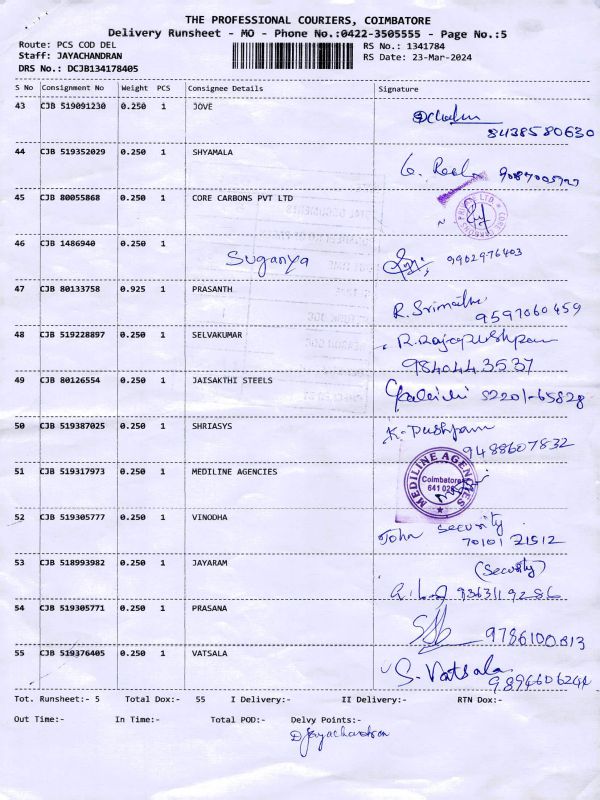 THE PROFESSIONAL COURIERS, COIMBATORE
Delivery Runsheet - MO - Phone No.:0422-3505555 - Page No.:5
Route: PCS COD DEL
RS No.: 1341784
Staff: JAYACHANDRAN
RS Date: 23-Mar-2024
DRS No.: DCJB134178405
S No Consignment No Weight PCS Consignee Details Signature
43 CJB 519091230 0.250 1 JOVE
8438580630
44 CJB 519352029 0.250 1 SHYAMALA
45 CJB 80055868 0.250 1 CORE CARBONS PVT LTD
46 CJB 1486940 0.250 1
Suganya 9902976403
47 CJB 80133758 0.925 1 PRASANTH
R. Srimathi
9597060459
48 CJB 519228897 0.250 1 SELVAKUMAR
R. Rajapushpam
984044 3537
49 CJB 80126554 0.250 1 JAISAKTHI STEELS
52201-65828
50 CJB 519387025 0.250 1 SHRIASYS
K. Pushpam
9488607832
51 CJB 519317973 0.250 1 MEDILINE AGENCIES
MEDILINE AGENCIES
Coimbatore
641 028
52 CJB 519305777 0.250 1 VINODHA
John security
70101 21512
53 CJB 518993982 0.250 1 JAYARAM
(Security)
9363119286
54 CJB 519305771 0.250 1 PRASANA
9786100813
55 CJB 519376405 0.250 1 VATSALA
S. Vatsala
9894606244
Tot. Runsheet:- 5 Total Dox:- 55 I Delivery:- II Delivery:- RTN Dox:-
Out Time:- In Time:- Total POD:- Delvy Points:-
D Jayachandran